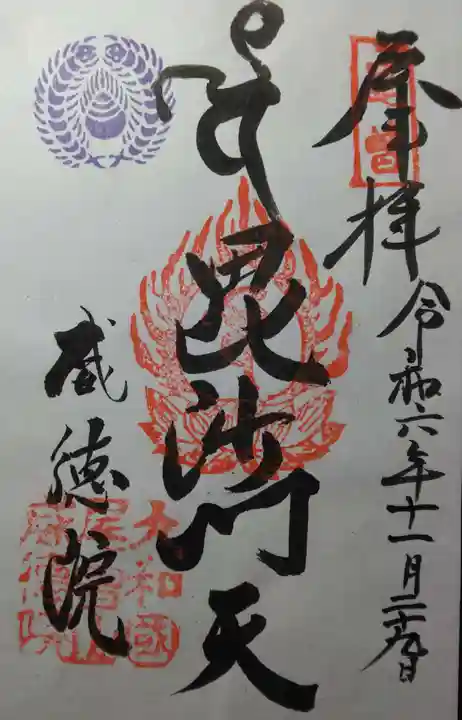 奉拝
令和六年十一月二十九日
毘沙門天
威徳院
大和國
威德院